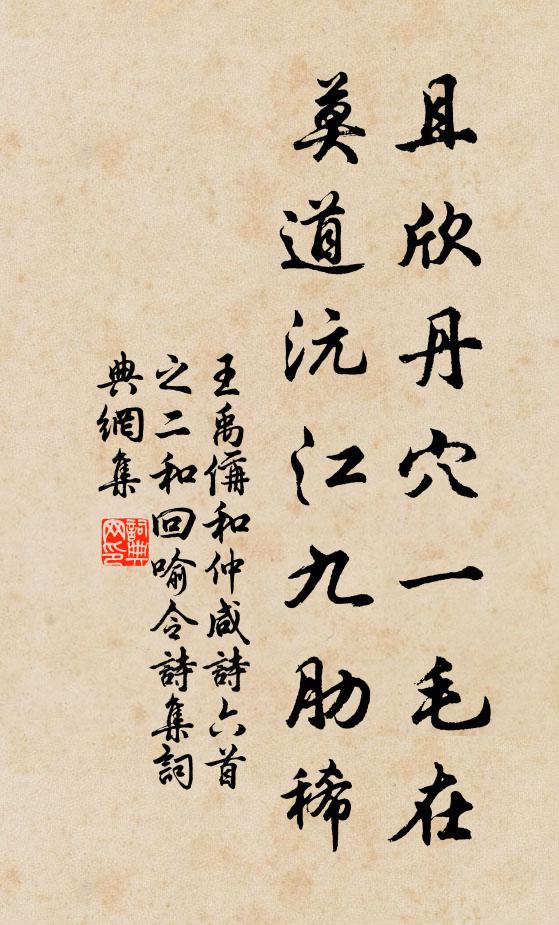 且欣丹穴一毛在
莫道沅江九肋稀
王禹偁和仲咸詩六首
之二和回喻今詩集詞
典網集
詞典網印